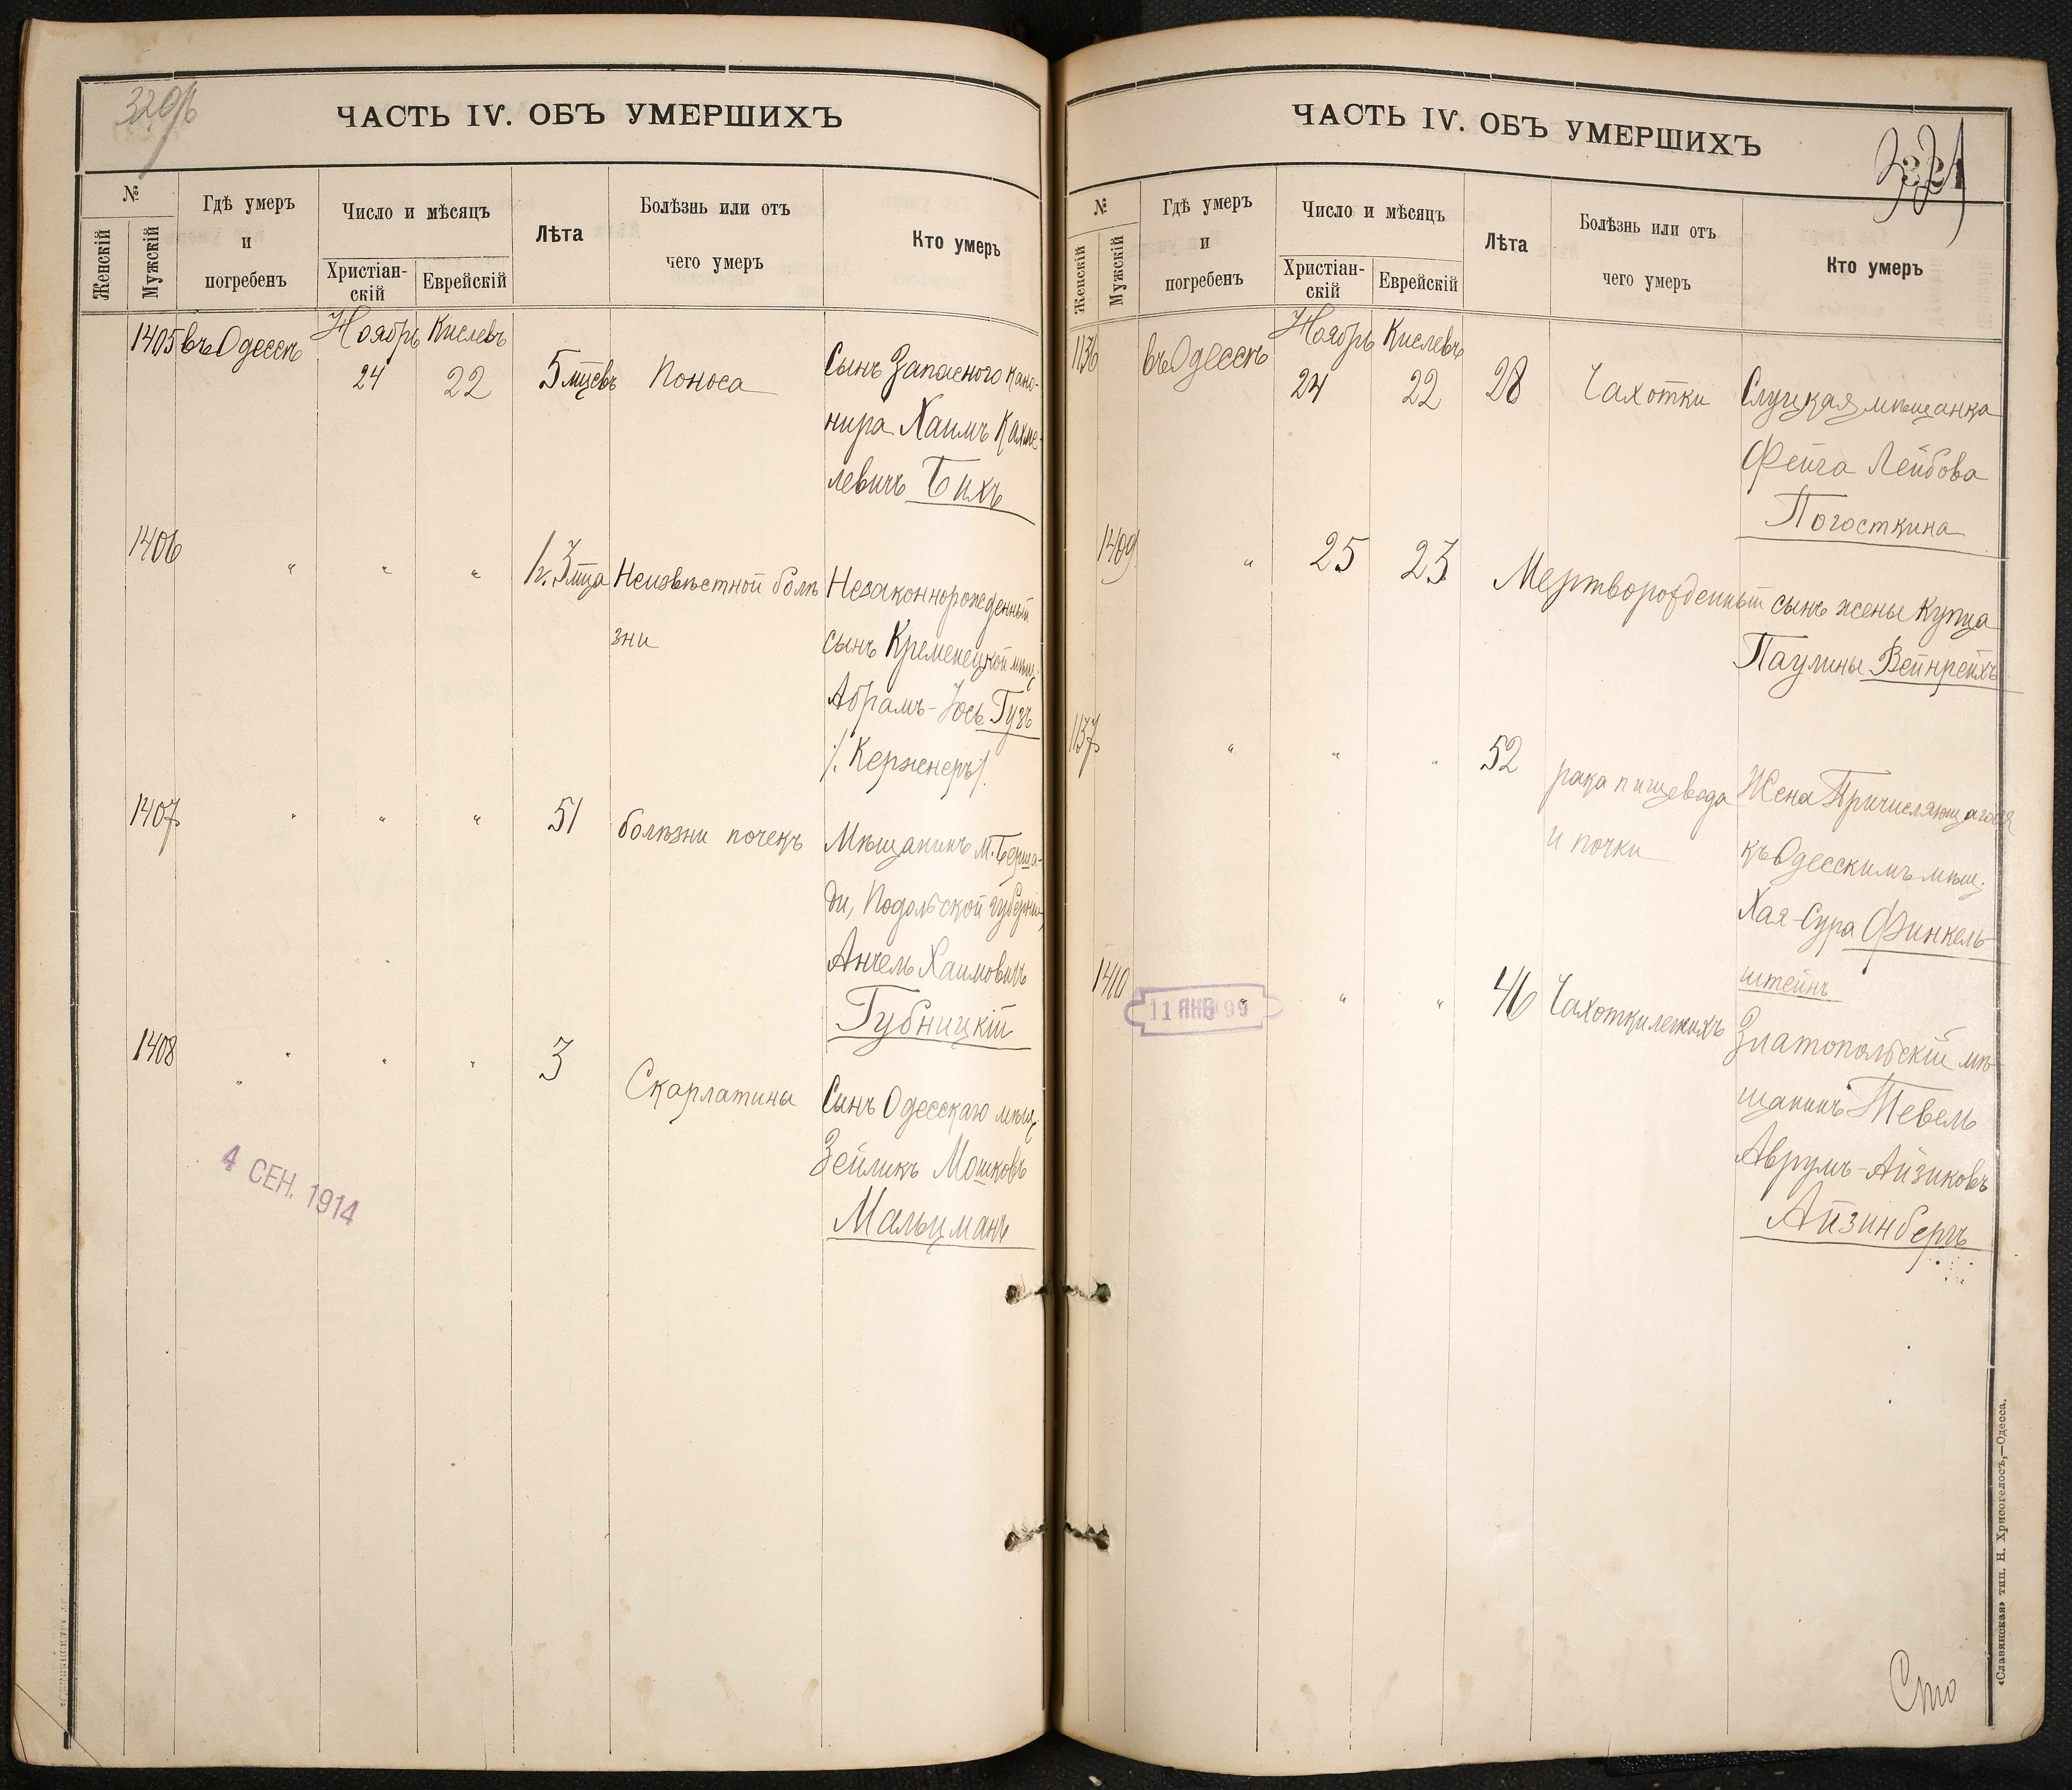 320об
ЧАСТЬ IV. ОБЪ УМЕРШИХЪ
№
Женскій
Мужскій
Гдѣ умеръ
и
погребенъ
Число и мѣсяцъ
Христіан-
скій
Еврейскій
Лѣта
Болѣзнь или отъ
чего умеръ
Кто умеръ
1405 въ Одессѣ Ноябрь Кислевъ
24 22 5 мцевъ Поноса Сынъ Запасного кано-
нира Хаимъ Кахме-
левичъ Бихъ
1406 " " " 1 г. 3 мца Неизвѣстной болѣ Незаконнорожденный
зни сынъ Кременецкой мѣщ.
Абрамъ-Іось Гузъ
/. Керженеръ/.
1407 " " " 51 болѣзни почекъ Мѣщанинъ м. Берша-
ди, Подольской губерніи,
Анчель Хаимовичъ
Губницкій
1408 " " " 3 Скарлатины Сынъ Одесскаго мѣщ.
Зейликъ Мошковъ
Мальцманъ
4 СЕН. 1914
ЧАСТЬ IV. ОБЪ УМЕРШИХЪ
321
№
Женскій
Мужскій
Гдѣ умеръ
и
погребенъ
Число и мѣсяцъ
Христіан-
скій
Еврейскій
Лѣта
Болѣзнь или отъ
чего умеръ
Кто умеръ
1136 въ Одессѣ Ноябрь Кислевъ
24 22 28 Чахотки Слуцкая мѣщанка
Фейга Лейбова
Погосткина
1409 " 25 23 Мертворожденный сынъ жены купца
Паулины Вейнрейхъ
1137 " " " 52 рака пищевода Жена Причисляющагося
и почки къ Одесскимъ мѣщ.
Хая-Сура Финкель-
штейнъ
1410 " " " 46 Чахотки легкихъ Златопольскій мѣ-
щанинъ Тевель
Аврумъ-Айзиковъ
Айзинбергъ
11 ЯНВ 99
«Славянская» тип. Н. Хрисогелосъ,—Одесса.